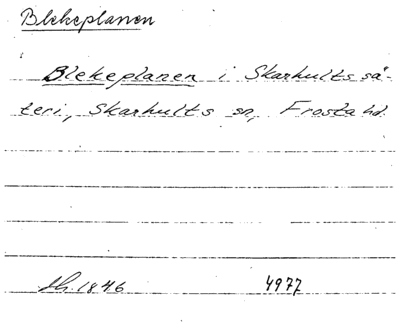 Blekeplanen
Blekeplanen i Skarhults sä-
teri, Skarhults sn, Frosta hd.
sh. 1846 4977